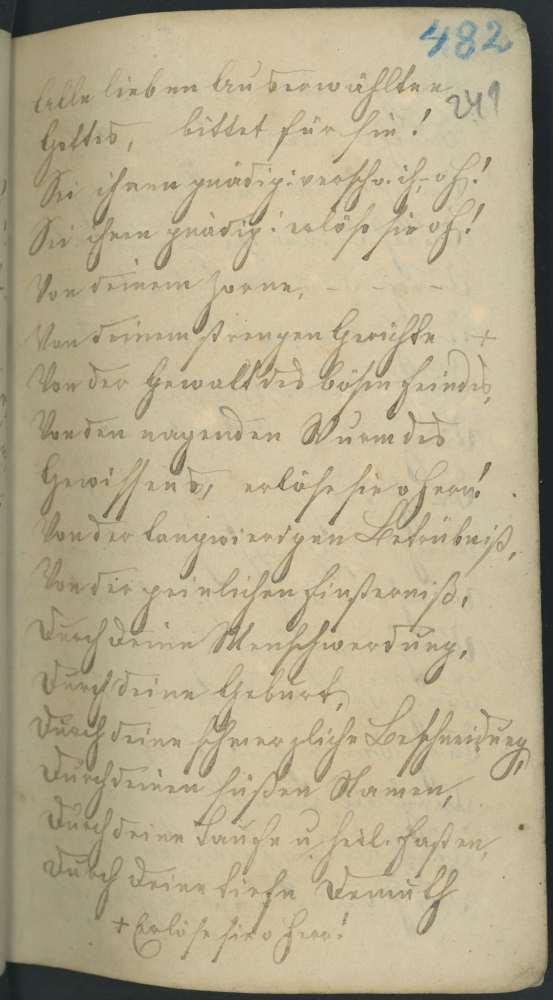 482
241
Alle lieben Auserwählten
Gottes, bittet für sie!
Sei ihnen gnädig: versch. ih. o H.!
Sei ihnen gnädig: erlöse sie o H.!
Von deinem Zorne, - - -
Von deinem strengen Gerichte +
Von der Gewalt des bösen Feindes,
Von den nagenden Wurm des
Gewissens, erlöse sie o Herr!
Von der langwierigen Betrübniß,
Von der peinlichen Finsterniß,
Durch deine Menschwerdung,
Durch deine Geburt,
Durch deine schmerzliche Beschneidung,
Durch deinen süßen Namen,
Durch deine Taufe u. heil. Fasten,
Durch deine tiefe Demuth
+ Erlöse sie o Herr!